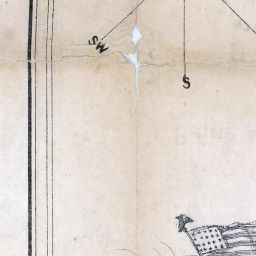 SW
S